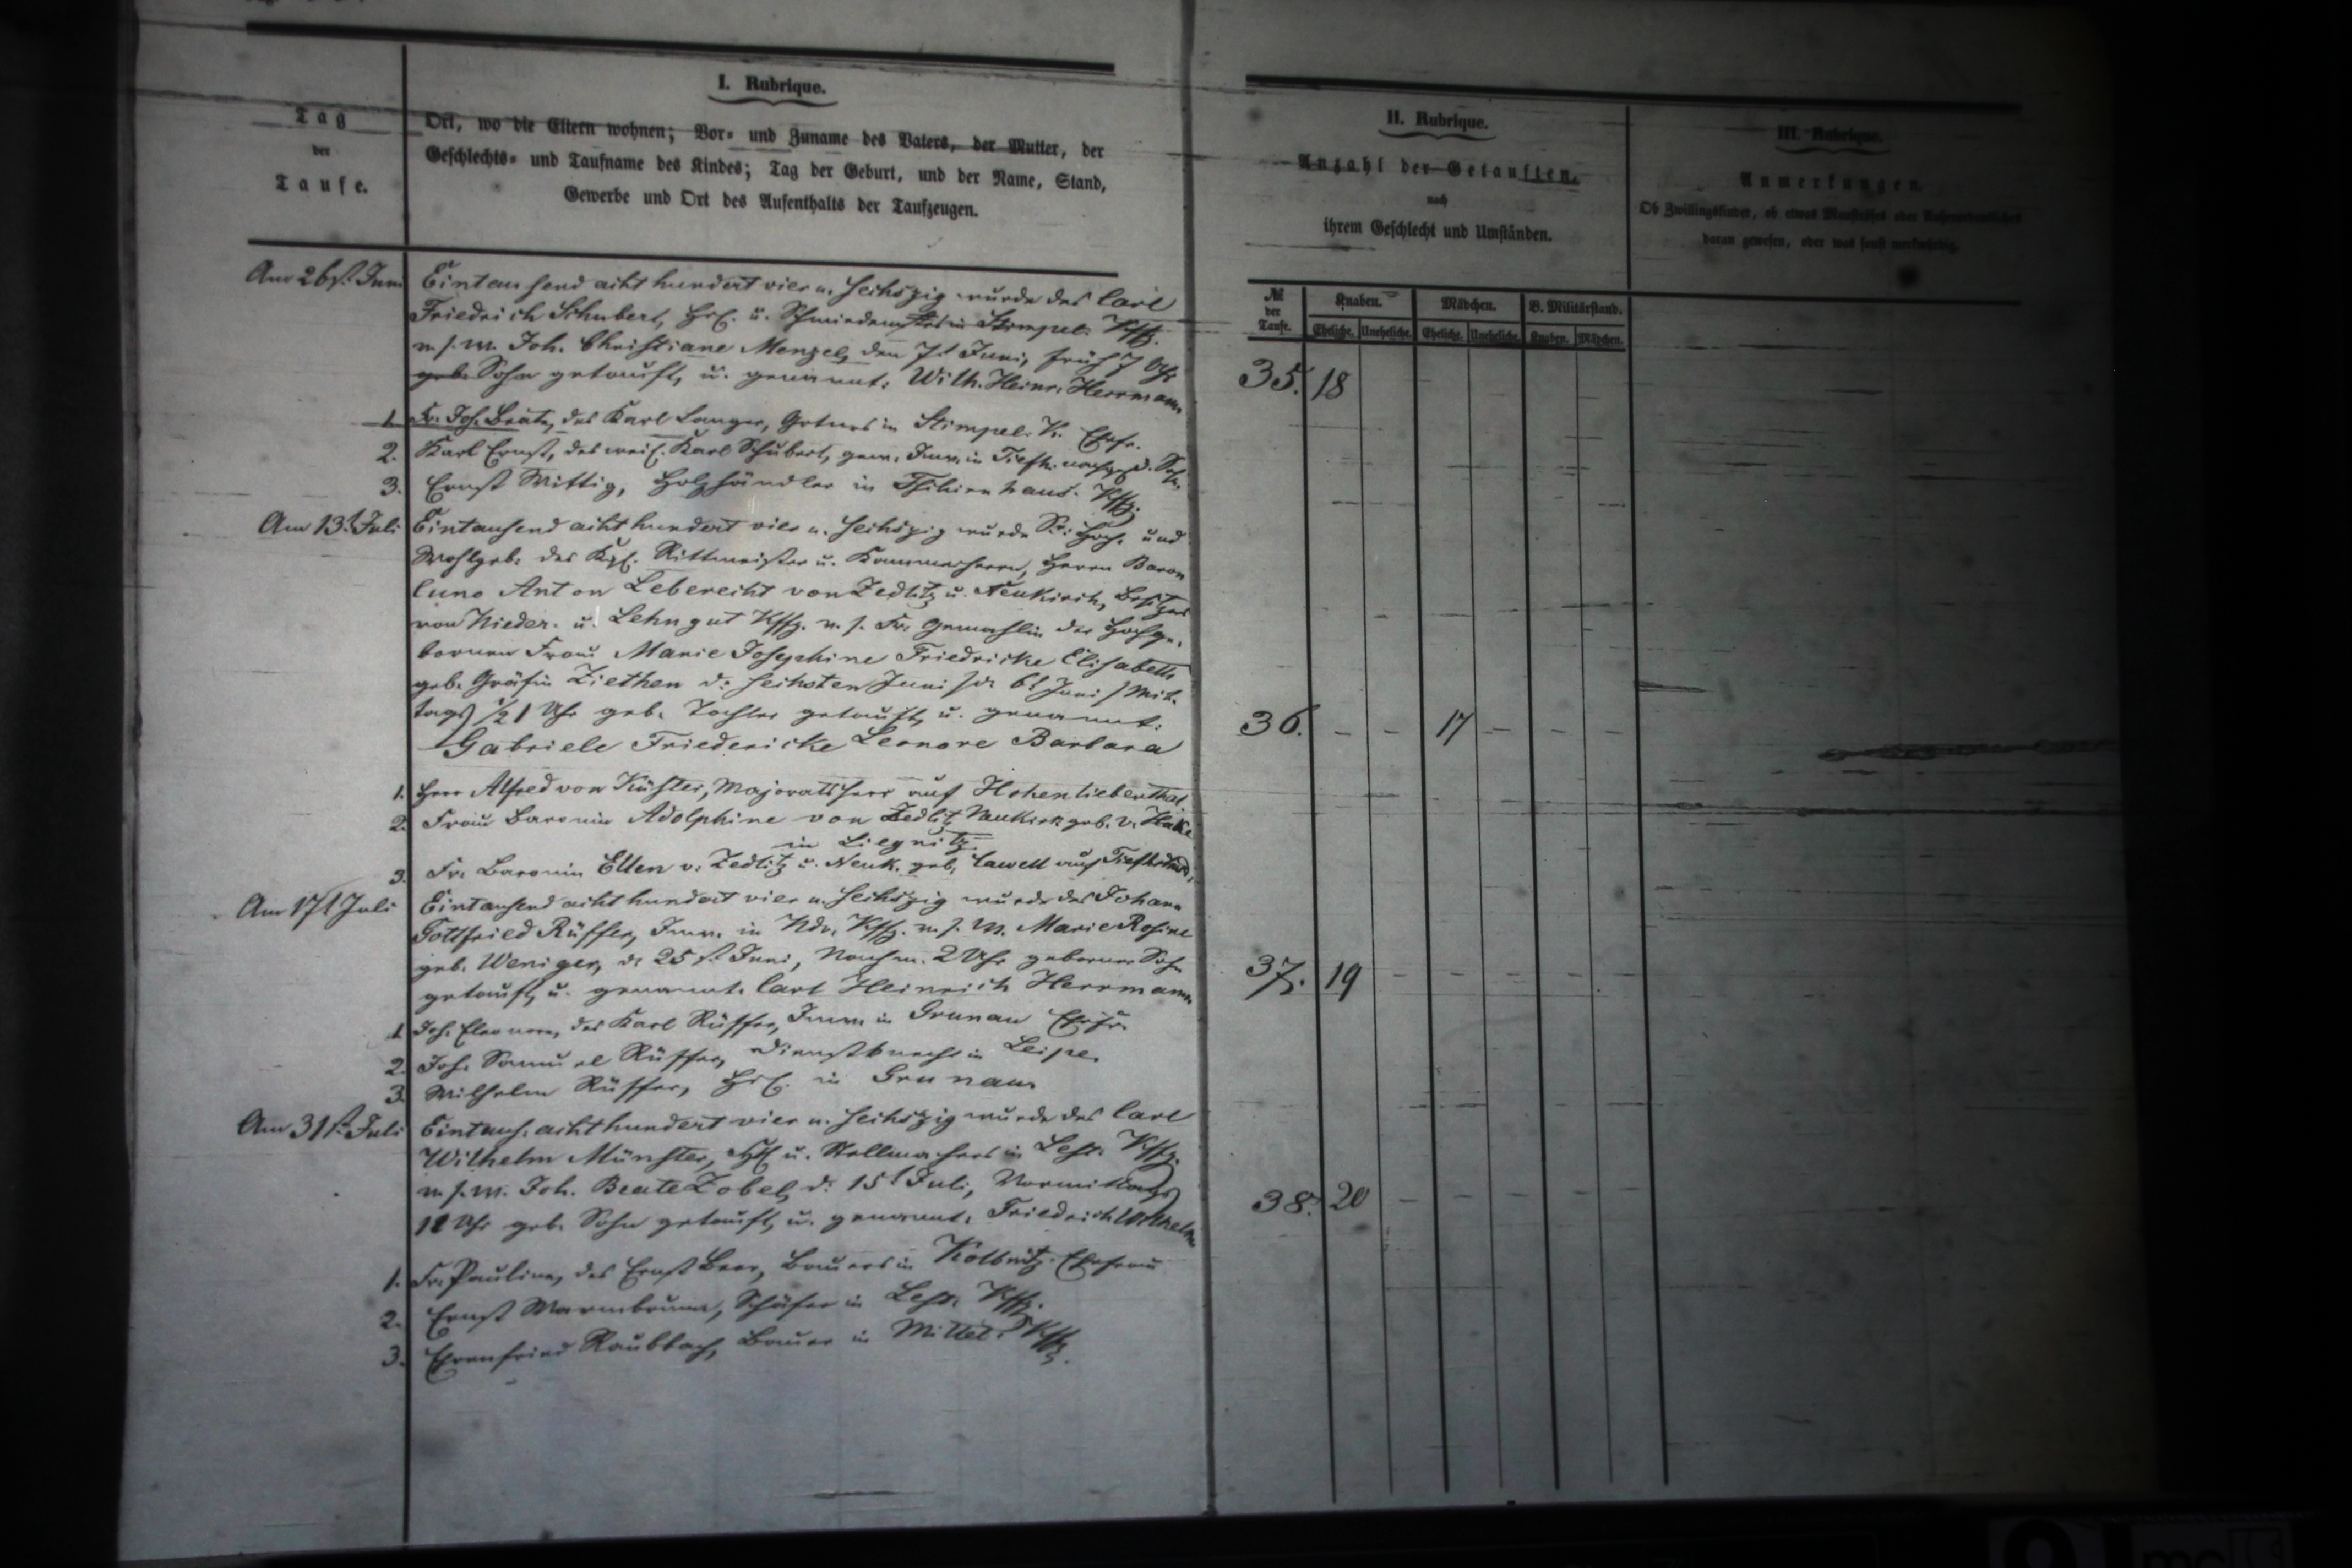 I. Rubrique.
Tag
der
Taufe.
Ort, wo die Eltern wohnen; Vor- und Zuname des Vaters, der Mutter, der
Geschlechts- und Taufname des Kindes; Tag der Geburt, und der Name, Stand,
Gewerbe und Ort des Aufenthalts der Taufzeugen.
II. Rubrique.
Anzahl der Getauften,
nach
ihrem Geschlecht und Umständen.
III. Rubrique.
Anmerkungen.
Ob Zwillingskinder, ob etwas Monströses oder Außerordentliches
daran gewesen, oder was sonst merkwürdig.
No. der Taufe.
Knaben. Mädchen. B. Militärstand.
Eheliche. Uneheliche. Eheliche. Uneheliche. Knaben. Mädchen.
Am 26st. Juni Eintausend acht hundert vier u. sechszig wurde des Carl
Friedrich Schubert, u. Schmiedemstrs in Stimpel. Kffg.
m. s. W. Joh. Christiane Menzel, den 7t Juni, früh 7 Uhr
geb. Sohn getauft, u. genannt: Wilh. Heinr. Herrmann
35. 18
1. Fr. Joh. Beate, des Karl Langer, in Stimpel. K. Ehefr.
2. Karl Ernst, des weil. Karl Schubert, gew. Inw. in Tiefh. Sohn
3. Ernst Wittig, Holzhändler in Kffg.
Am 13t Juli Eintausend acht hundert vier u. sechszig wurde Sr. Hoch- und
Wohlgeb. des Kgl. Rittmeister u. Kammerherrn, Herrn Baron
Cuno Anton Leberecht von Zedlitz u. Neukirch, Besitzer
von Nieder- u. Lehngut Kffg. m. s. Fr. Gemahlin der Hochge-
bornen Frau Marie Josephine Friedricke Elisabeth
geb. Gräfin Ziethen d. sechsten Juni /d. 6t Juni/ Mit-
tags 1/2 1 Uhr geb. Tochter getauft, u. genannt:
Gabriele Friedericke Leonore Barbara
36. – – 17 – – –
1. Herr Alfred von Küster, Majoratsherr auf Hohenliebenthal
2. Frau Baronin Adolphine von Zedlitz Neukirch geb. v. Hake
in Liegnitz
3. Fr. Baronin Ellen v. Zedlitz u. Neuk. geb. Cawell auf Tiefhartmd.
Am 17t Juli Eintausend acht hundert vier u. sechszig wurde des Johann
Gottfried Rüffer, Inw. in Ndr. Kffg. m. s. W. Marie Rosine
geb. Weniger, d. 25st. Juni, Nachm. 2 Uhr geborner Sohn
getauft, u. genannt: Carl Heinrich Herrmann
37. 19 – – – – –
1. Joh. Eleonore, des Karl Rüffer, Inw. in Grunau Ehefr.
2. Joh. Samuel Rüffer, Dienstknecht in Leipe.
3. Wilhelm Rüffer, in Grunau
Am 31st. Juli Eintaus. acht hundert vier u. sechszig wurde des Carl
Wilhelm Münster, u. Stellmachers in Kffg.
m. s. W. Joh. Beate Zobel, d. 15t Juli, Vormittags
Uhr geb. Sohn getauft, u. genannt: Friedrich Wilhelm
38. 20 – – – – –
1. Fr. Pauline, des Ernst Beer, Bauers in Kolbnitz Ehefrau
2. Ernst Warmbrunn, Schäfer in Kffg.
3. Ehrenfried Raubbach, Bauer in Mittel- Kffg.